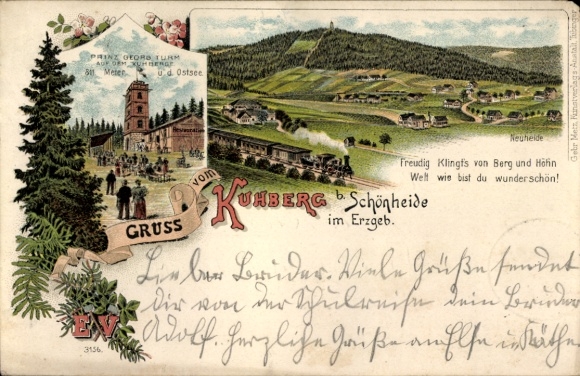 PRINZ GEORG TURM
AUF DEM KUHBERGE
811 Meter ü. d. Ostsee
Restauration
Neuheide
Freudig Klingt's von Berg und Höh'n
Welt wie bist du wunderschön!
GRUSS vom KUHBERG b. Schönheide
im Erzgeb.
Lieber Bruder. Viele Grüße sendet
Dir von der Schulreise dein Bruder
Adolf. herzliche Grüße an Else u. Käthe
E.V.
3156.